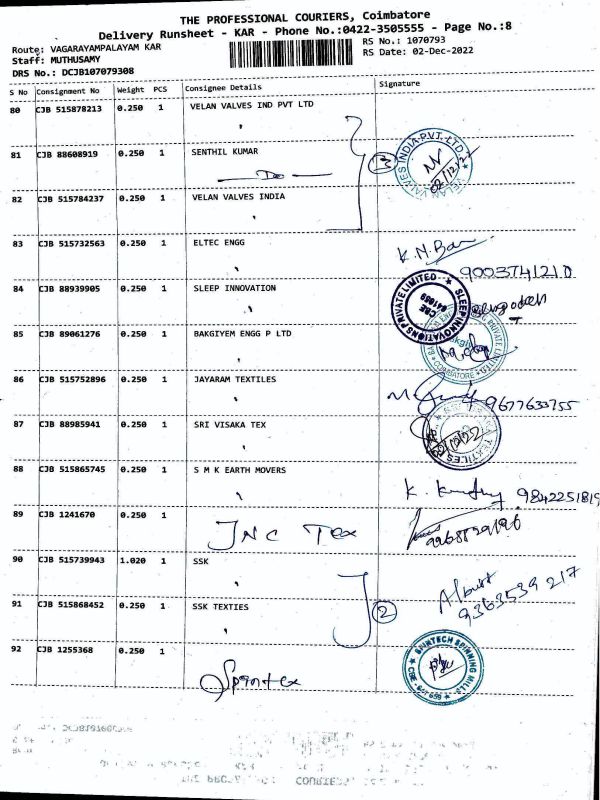 THE PROFESSIONAL COURIERS, Coimbatore
Delivery Runsheet - KAR - Phone No.:0422-3505555 - Page No.:8
Route: VAGARAYAMPALAYAM KAR
RS No.: 1070793
Staff: MUTHUSAMY
RS Date: 02-Dec-2022
DRS No.: DCJB107079308
S No Consignment No Weight PCS Consignee Details Signature
80 CJB 515878213 0.250 1 VELAN VALVES IND PVT LTD
81 CJB 88608919 0.250 1 SENTHIL KUMAR
Do
3
82 CJB 515784237 0.250 1 VELAN VALVES INDIA
83 CJB 515732563 0.250 1 ELTEC ENGG
9003741210
84 CJB 88939905 0.250 1 SLEEP INNOVATION
SLEEP INNOVATIONS PRIVATE LIMITED
CBE
641059
85 CJB 89061276 0.250 1 BAKGIYEM ENGG P LTD
COIMBATORE
86 CJB 515752896 0.250 1 JAYARAM TEXTILES
9677633755
87 CJB 88985941 0.250 1 SRI VISAKA TEX
TEXTILES
88 CJB 515865745 0.250 1 S M K EARTH MOVERS
9842251819
89 CJB 1241670 0.250 1 JNC Tex
90 CJB 515739943 1.020 1 SSK
Albert
9363539217
91 CJB 515868452 0.250 1 SSK TEXTIES
2
92 CJB 1255368 0.250 1
SPINTECH SPINNING MILLS